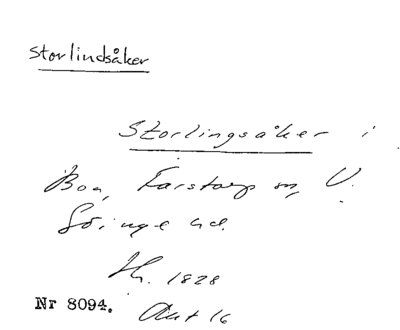 Storlindsåker
Storlingsåker i
Boa, Farstorp sn, V.
Göinge hd.
Hs. 1828
Nr 8094. Akt 16